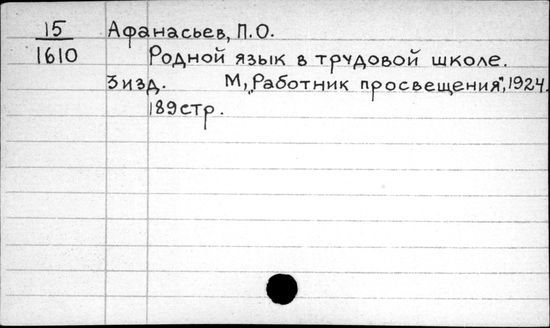 15 Афанасьев, П.О.
1610 Родной язык в трудовой школе.
3 изд. М, „Работник просвещения", 1924.
189 стр.